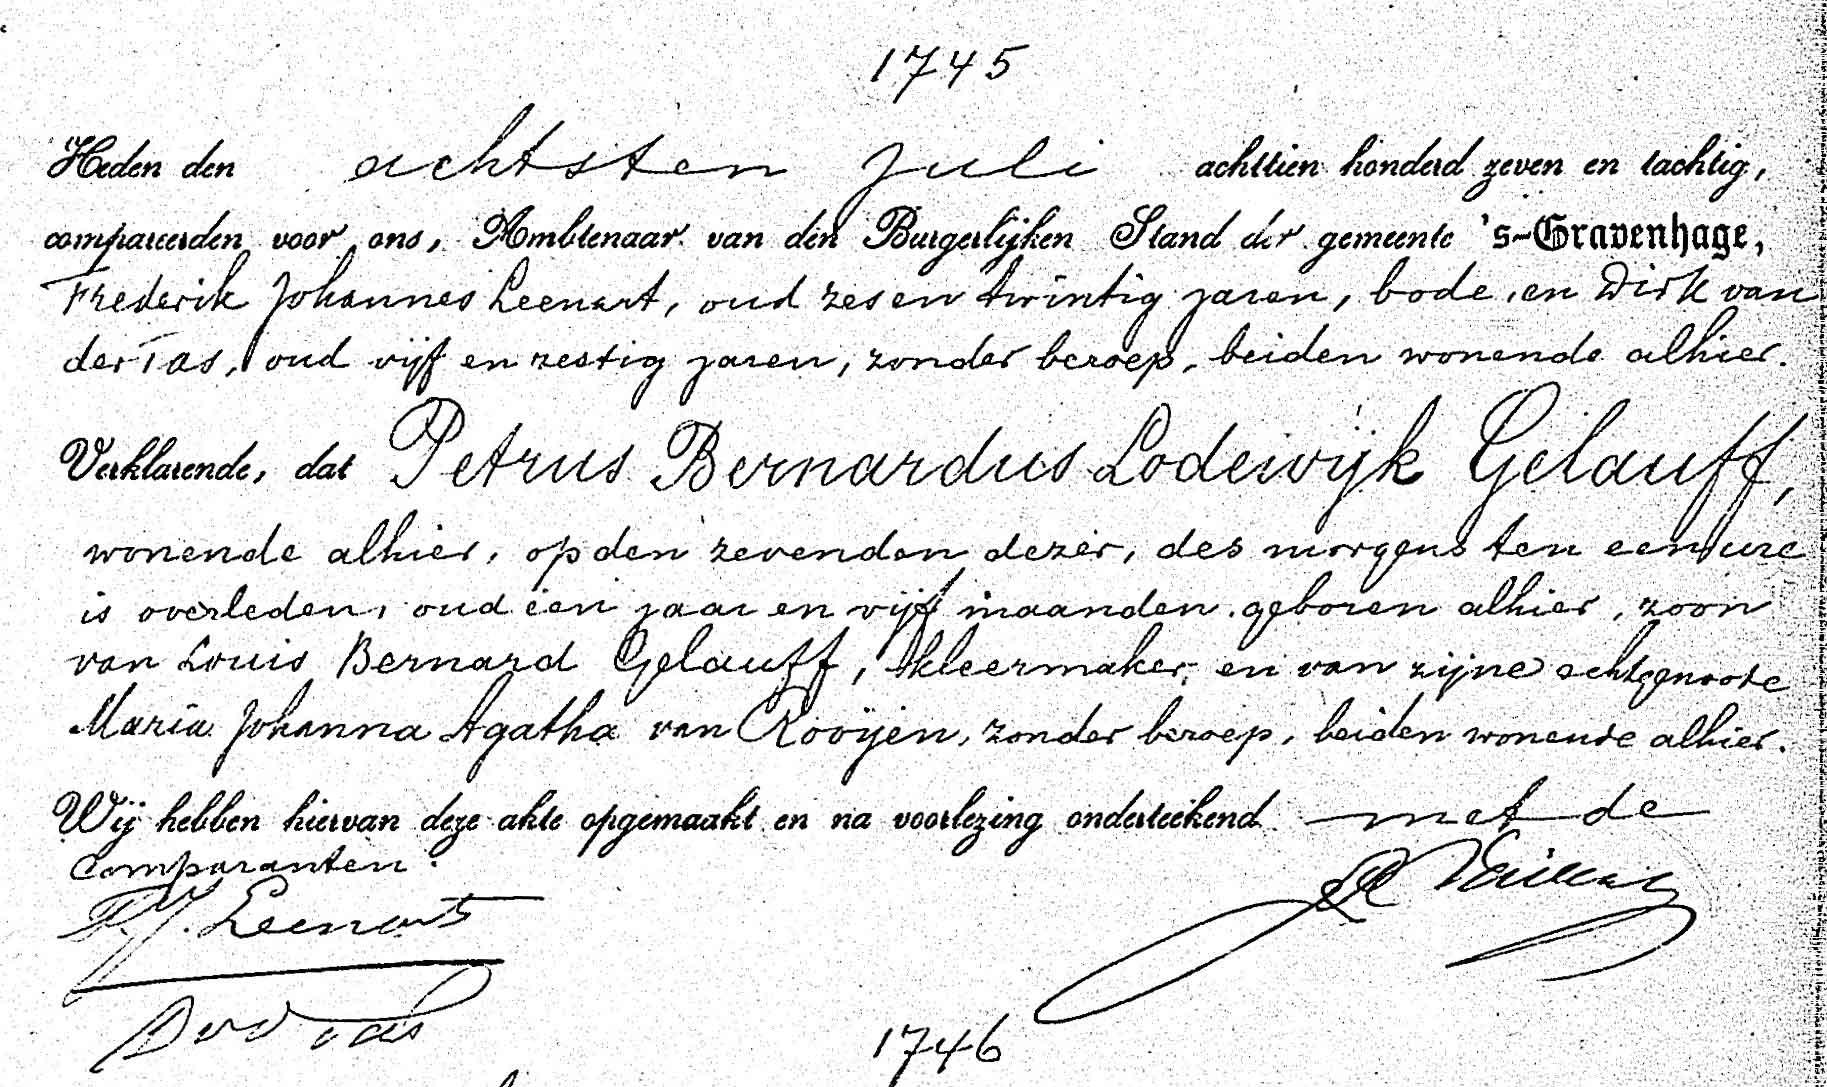 1745
Heden den achtsten Juli achttien honderd zeven en tachtig,
compareerden voor ons, Ambtenaar van den Burgerlijken Stand der gemeente 's-Gravenhage,
Frederik Johannes Leenart, oud zes en twintig jaren, bode, en Dirk van
der Tas, oud vijf en zestig jaren, zonder beroep, beiden wonende alhier.
Verklarende, dat Petrus Bernardus Lodewijk Gelauff,
wonende alhier, op den zevenden dezer, des morgens ten een ure
is overleden, oud één jaar en vijf maanden, geboren alhier, zoon
van Louis Bernard Gelauff, kleermaker, en van zijne echtgenoote
Maria Johanna Agatha van Rooijen, zonder beroep, beiden wonende alhier.
Wij hebben hiervan deze akte opgemaakt en na voorlezing onderteekend met de
comparanten.
F. J. Leenart
D v d Tas
1746